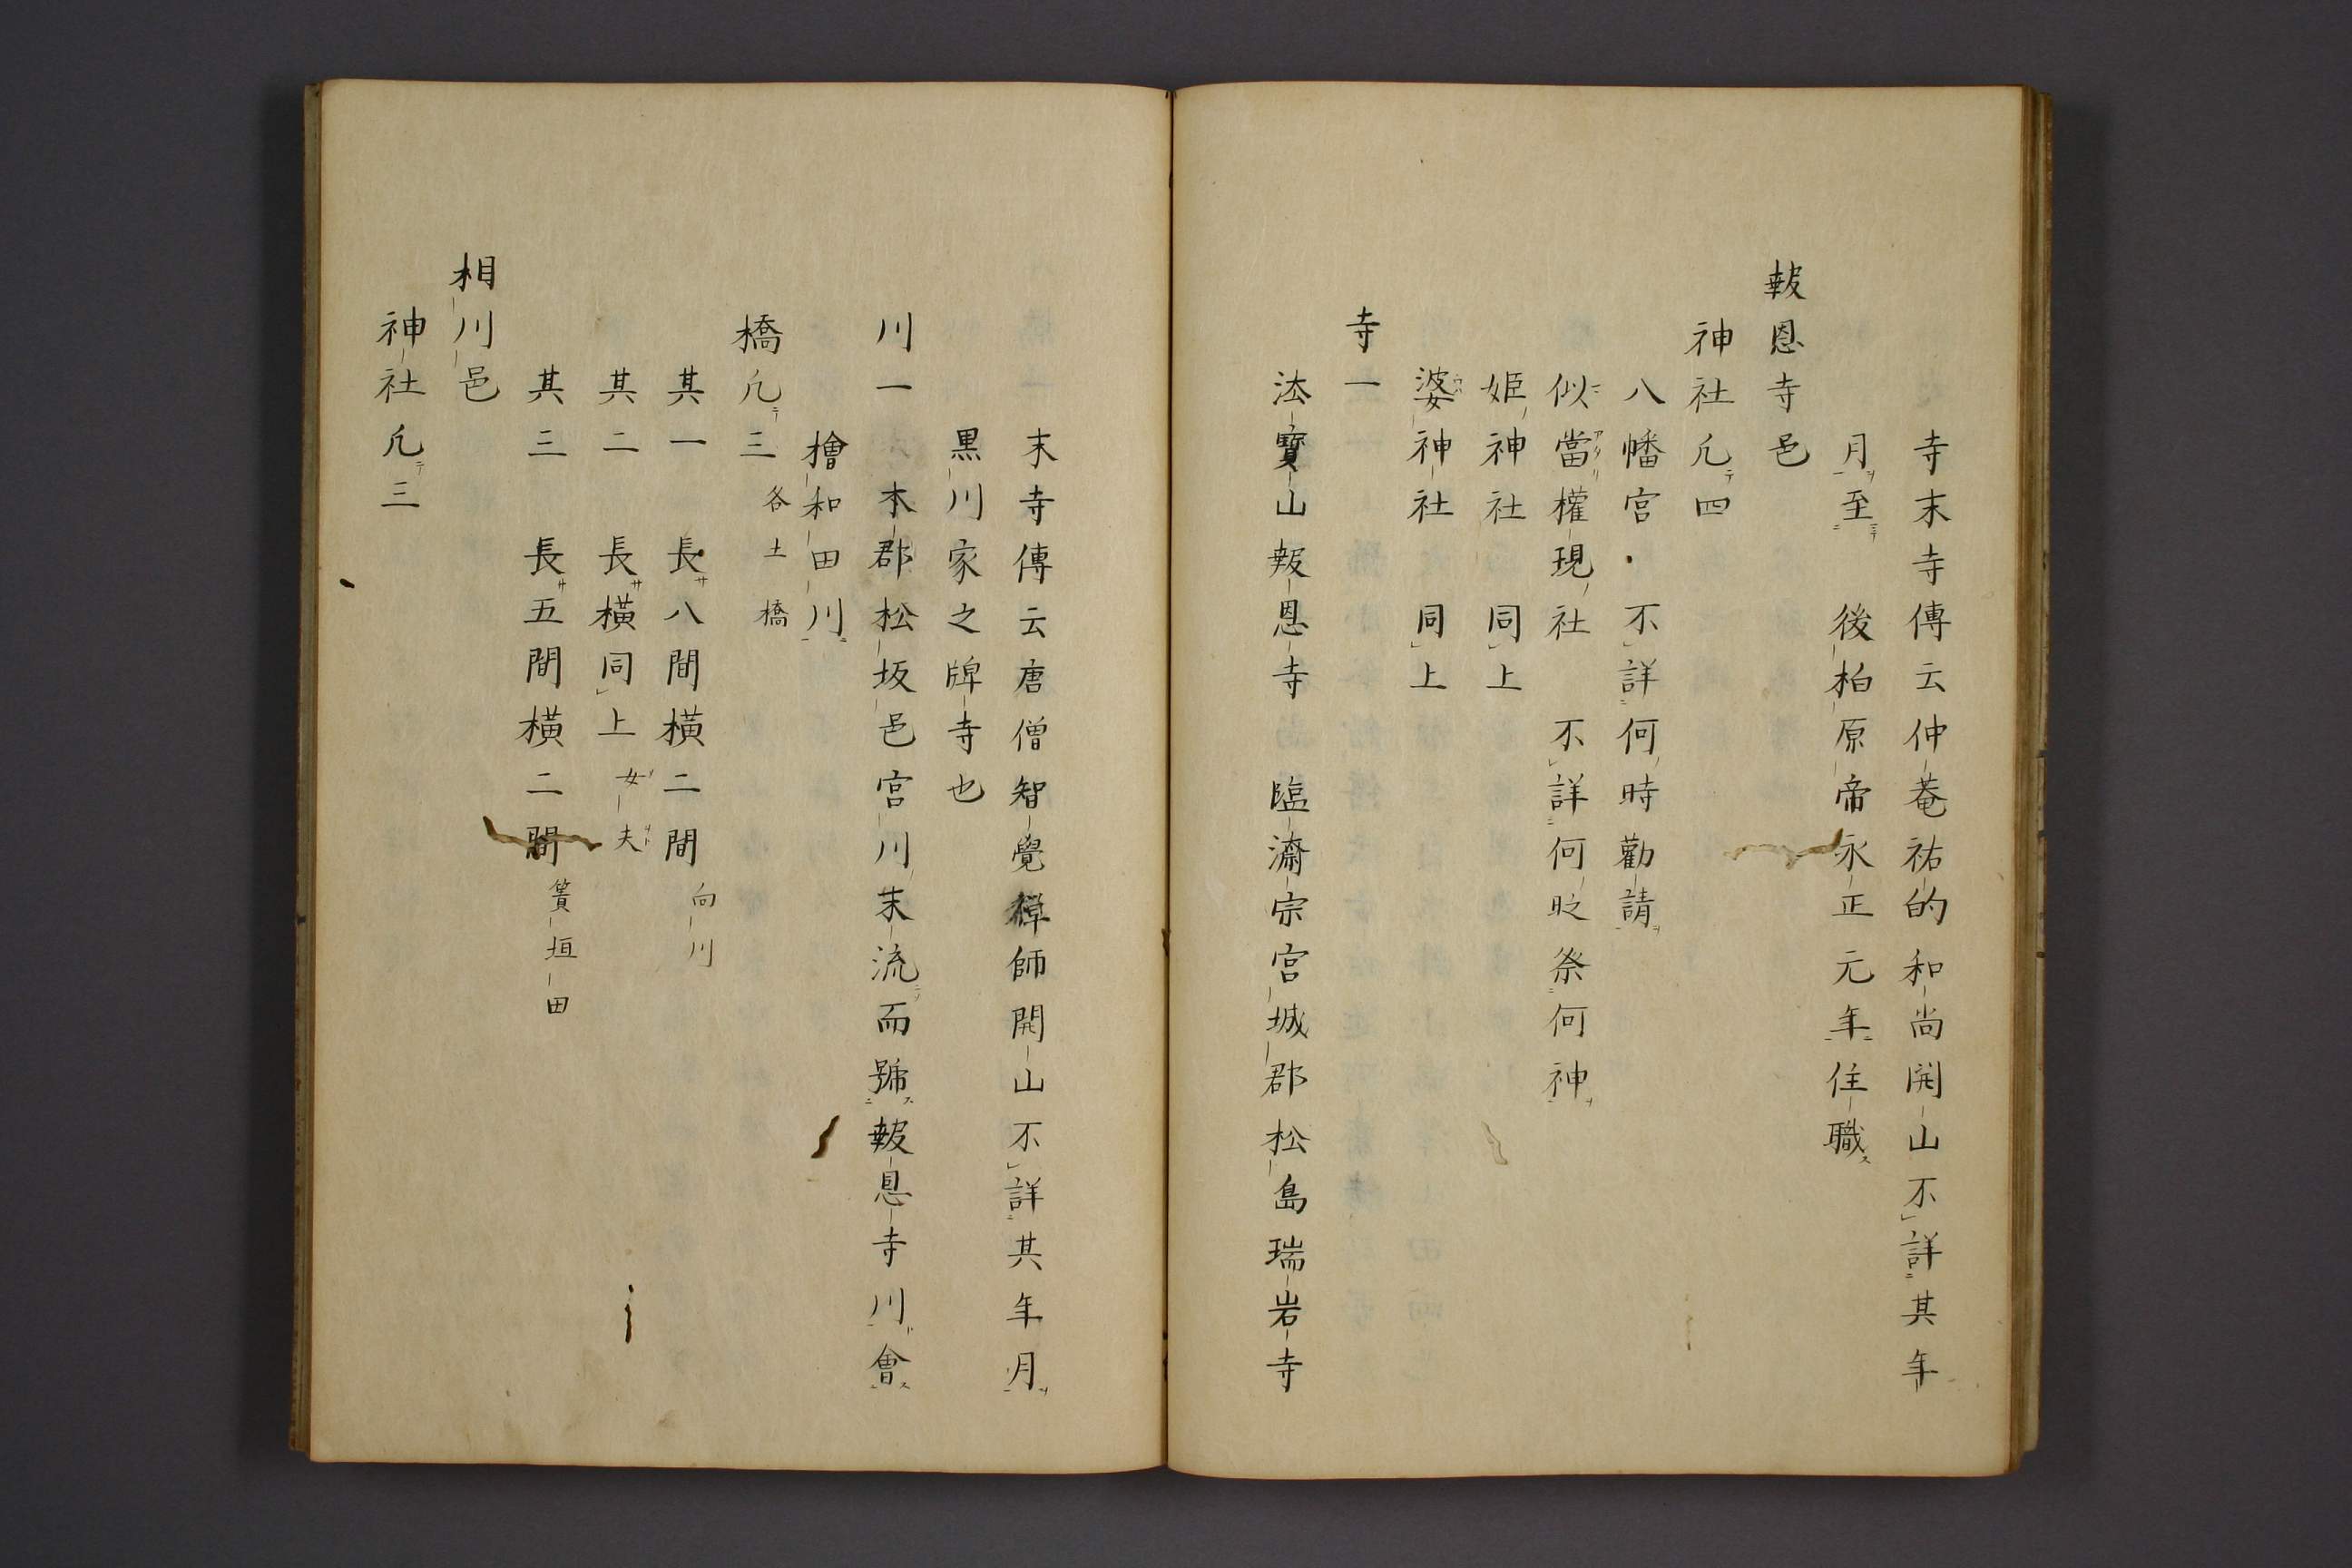 寺末寺傳云仲菴祐的和尚開山不詳其年
月至　後柏原帝永正元年住職
報恩寺邑
神社凢四
八幡宮・不詳何時勸請
似當權現社　不詳何时祭何神
姫神社　同上
婆神社　同上
寺一
法寶山報恩寺　臨濟宗宮城郡松島瑞岩寺
末寺傳云唐僧智覺禪師開山不詳其年月
黒川家之牌寺也
川一　本郡松坂邑宮川末流而號報恩寺川會
檜和田川
橋凢三　各土橋
其一　長八間橫二間　向川
其二　長橫同上　女夫
其三　長五間橫二間　簀垣田
相川邑
神社凢三